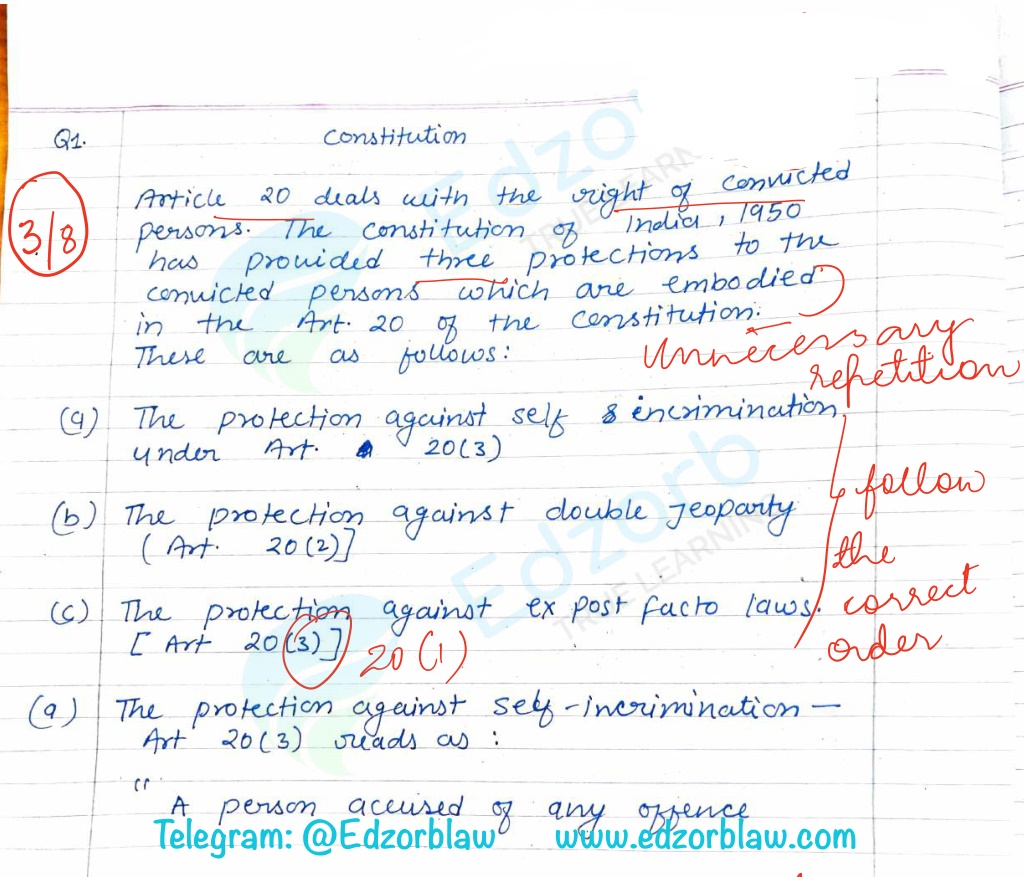 Q1. Constitution
3/8
Article 20 deals with the right of convicted
persons. The constitution of India, 1950
has provided three protections to the
convicted persons which are embodied
in the Art. 20 of the constitution.
These are as follows:
Unnecessary
repetition
(a) The protection against self incrimination
under Art. 20(3)
(b) The protection against double jeoparty
( Art. 20(2)]
(c) The protection against ex post facto laws.
[ Art 20(3)] 20(1)
follow
the
correct
order
(a) The protection against self-incrimination —
Art 20(3) reads as :
"
A person accused of any offence
Telegram: @Edzorblaw www.edzorblaw.com
Edzo
TRUE LEARN
Edzorb
TRUE LEARNING